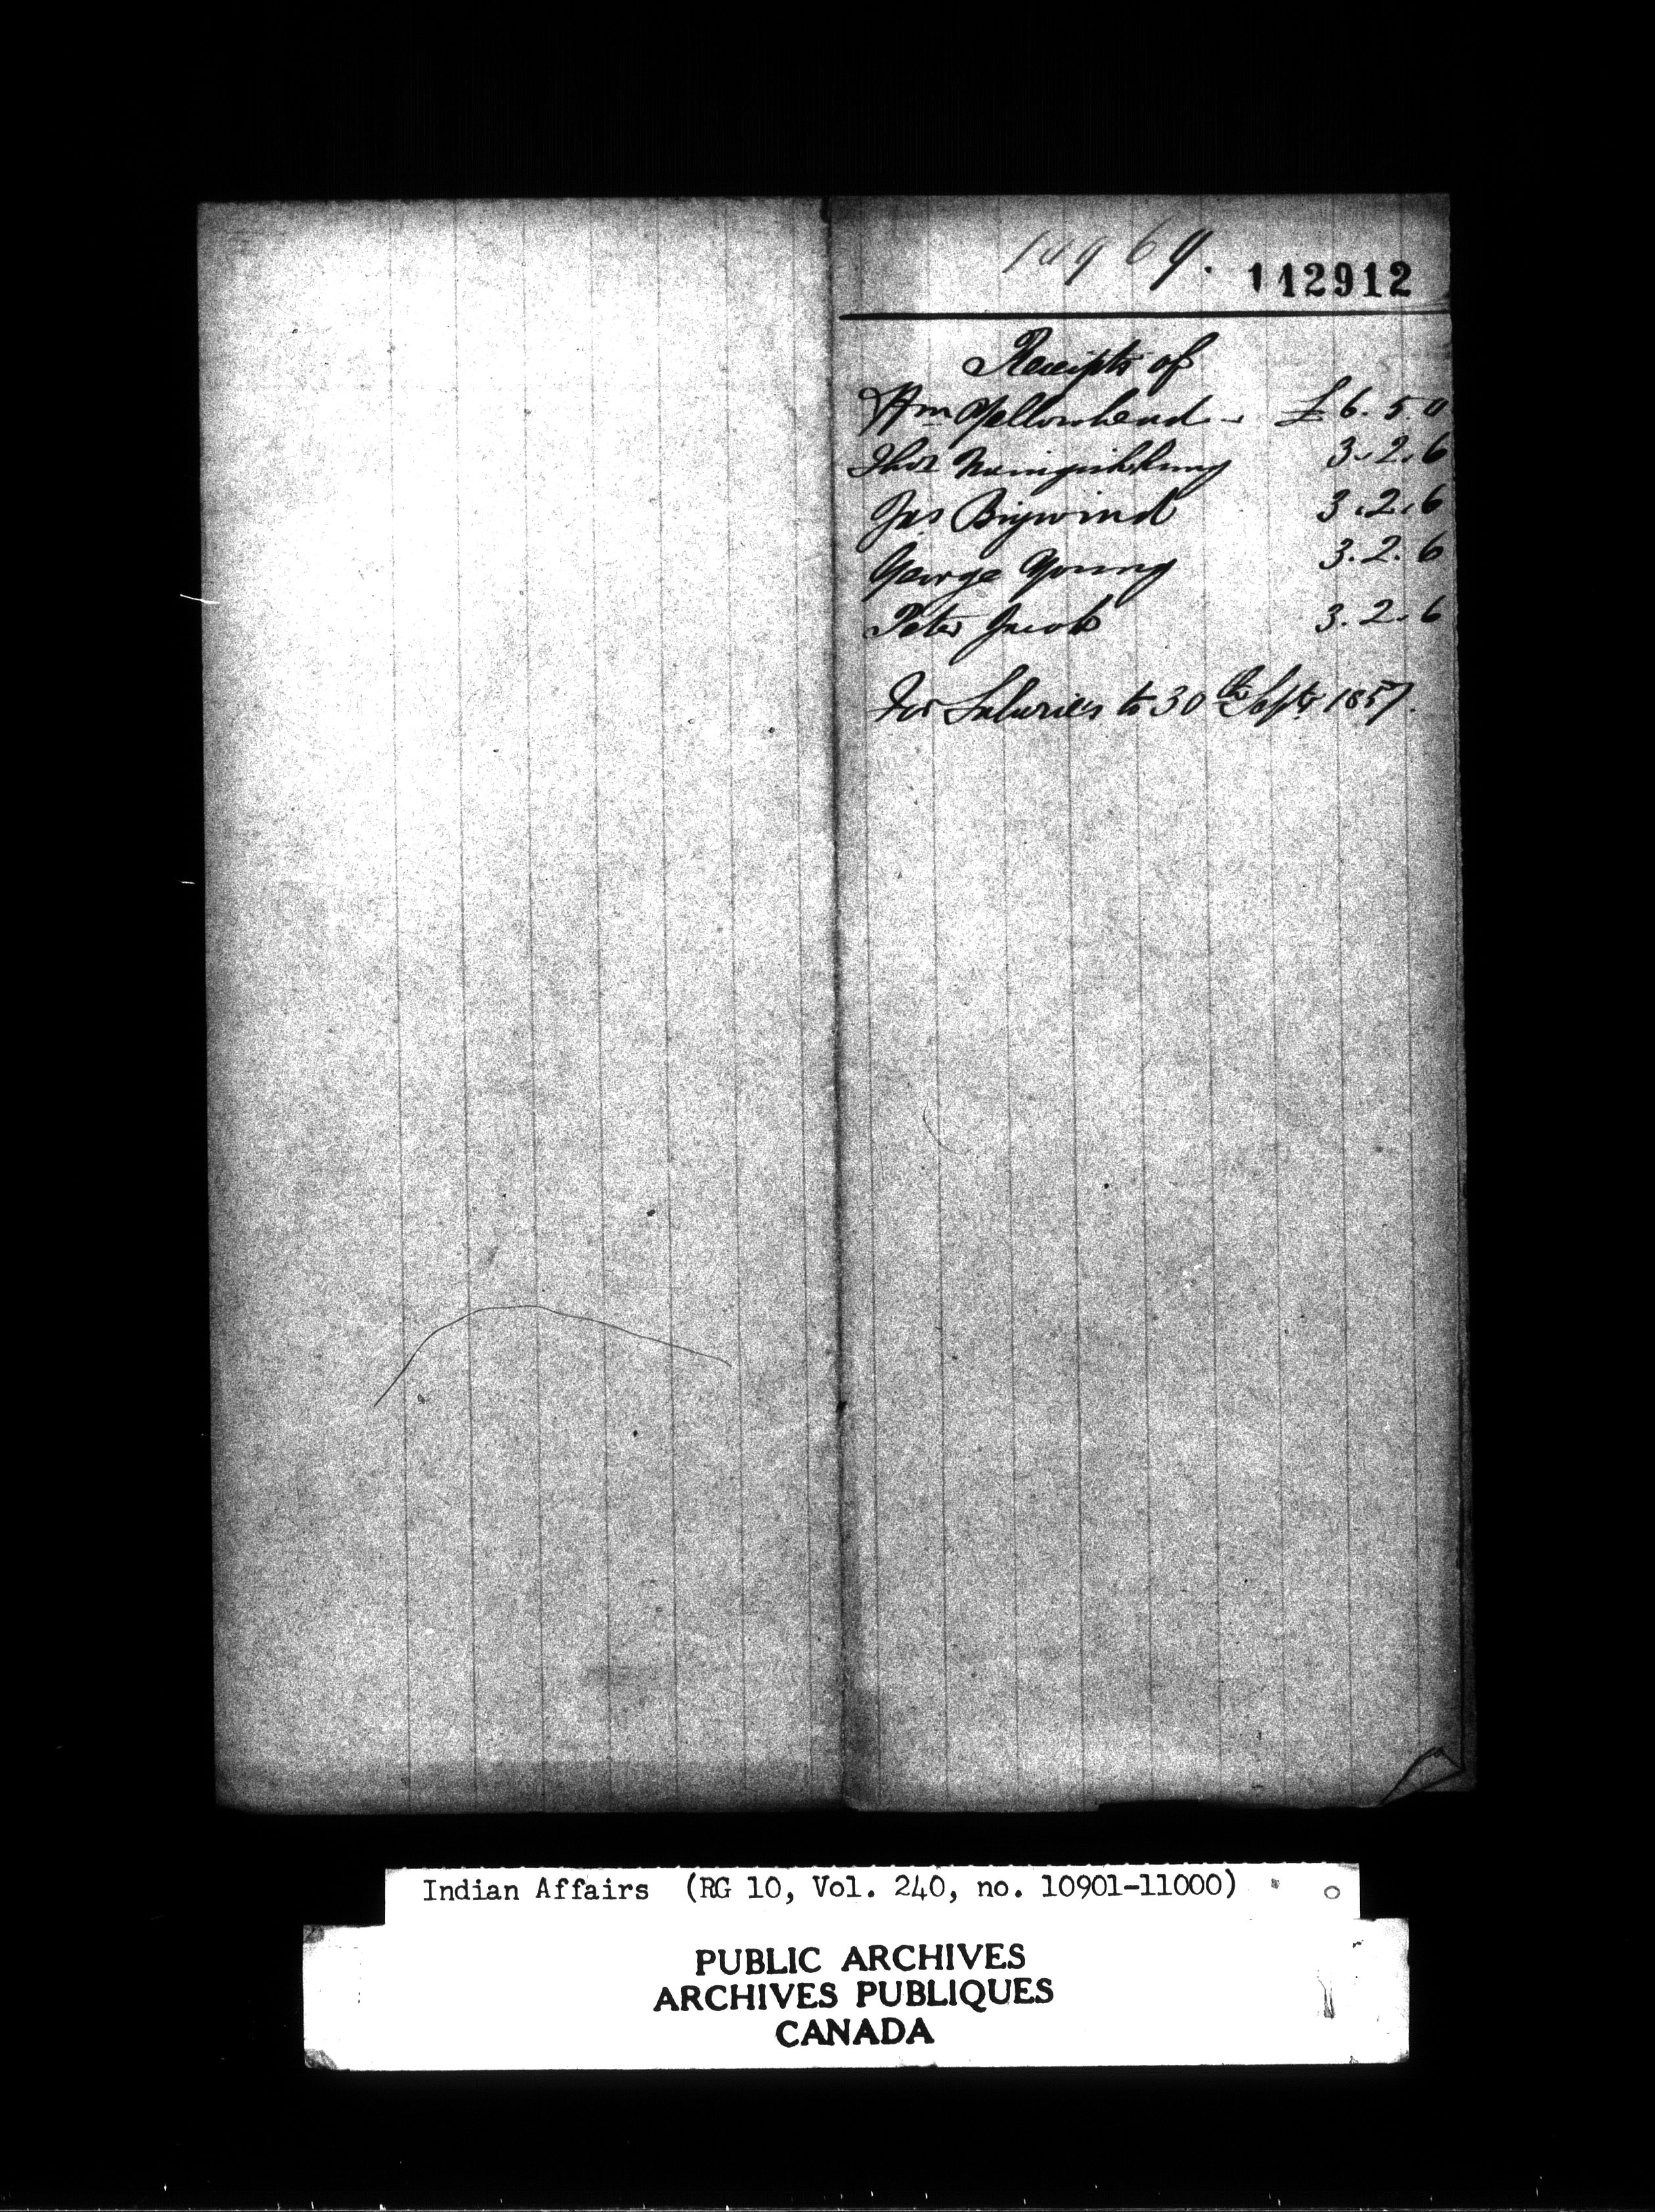 10969. 112912
Receipts of
Wm Yellowhead - £6.5.0
Thos 3.2.6
Jas Bigwind 3.2.6
George Young 3.2.6
Peter Jacobs 3.2.6
For Salaries to 30th Sept 1857.
Indian Affairs (RG 10, Vol. 240, no. 10901-11000)
PUBLIC ARCHIVES
ARCHIVES PUBLIQUES
CANADA